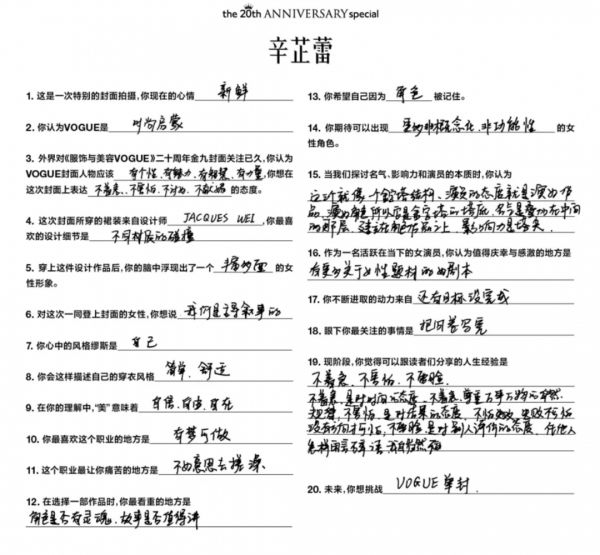 the 20th ANNIVERSARY special
辛芷蕾
1. 这是一次特别的封面拍摄,你现在的心情 新鲜
2. 你认为VOGUE是 时尚启蒙
3. 外界对《服饰与美容VOGUE》二十周年金九封面关注已久,你认为
VOGUE封面人物应该 有个性、有魅力、有期望、有力量,你想在
这次封面上表达 不着急、不害怕、不讨好 的态度。
4. 这次封面所穿的裙装来自设计师 JACQUES WEI ,你最喜
欢的设计细节是 不同材质的碰撞
5. 穿上这件设计作品后,你的脑中浮现出了一个 的女
性形象。
6. 对这次一同登上封面的女性,你想说 我们是主导叙事的
7. 你心中的风格缪斯是 自己
8. 你会这样描述自己的穿衣风格 简单、舒适
9. 在你的理解中,“美”意味着 自信、自由、自在
10. 你最喜欢这个职业的地方是 有梦可做
11. 这个职业最让你痛苦的地方是 不好意思去搓澡
12. 在选择一部作品时,你最看重的地方是
角色是否有灵魂,故事是否值得讲
13. 你希望自己因为 角色 被记住。
14. 你期待可以出现 更好非概念化、非功能性 的女
性角色。
15. 当我们探讨名气、影响力和演员的本质时,你认为
这计就像一个金字塔结构,演员的态度就是演好作
品,演好作品所以它是金字塔的塔底,名气是叠加在中间
的那层,建立在角色有品之上,影响力是塔尖。
16. 作为一名活跃在当下的女演员,你认为值得庆幸与感激的地方是
有更多关于女性题材的好剧本
17. 你不断进取的动力来自 还有目标没完成
18. 眼下你最关注的事情是 把问卷写完
19. 现阶段,你觉得可以跟读者们分享的人生经验是
不着急、不害怕、不要脸。
不着急,是对时间的态度,不着急,尊重万事万物的自然
规律,不害怕,是对结果的态度,不怕失败,失败和怕
没有任何好怕,不要脸是对别人评价的态度,任他人
怎样图言碎语,我自岿然不动
20. 未来,你想挑战 VOGUE单封.